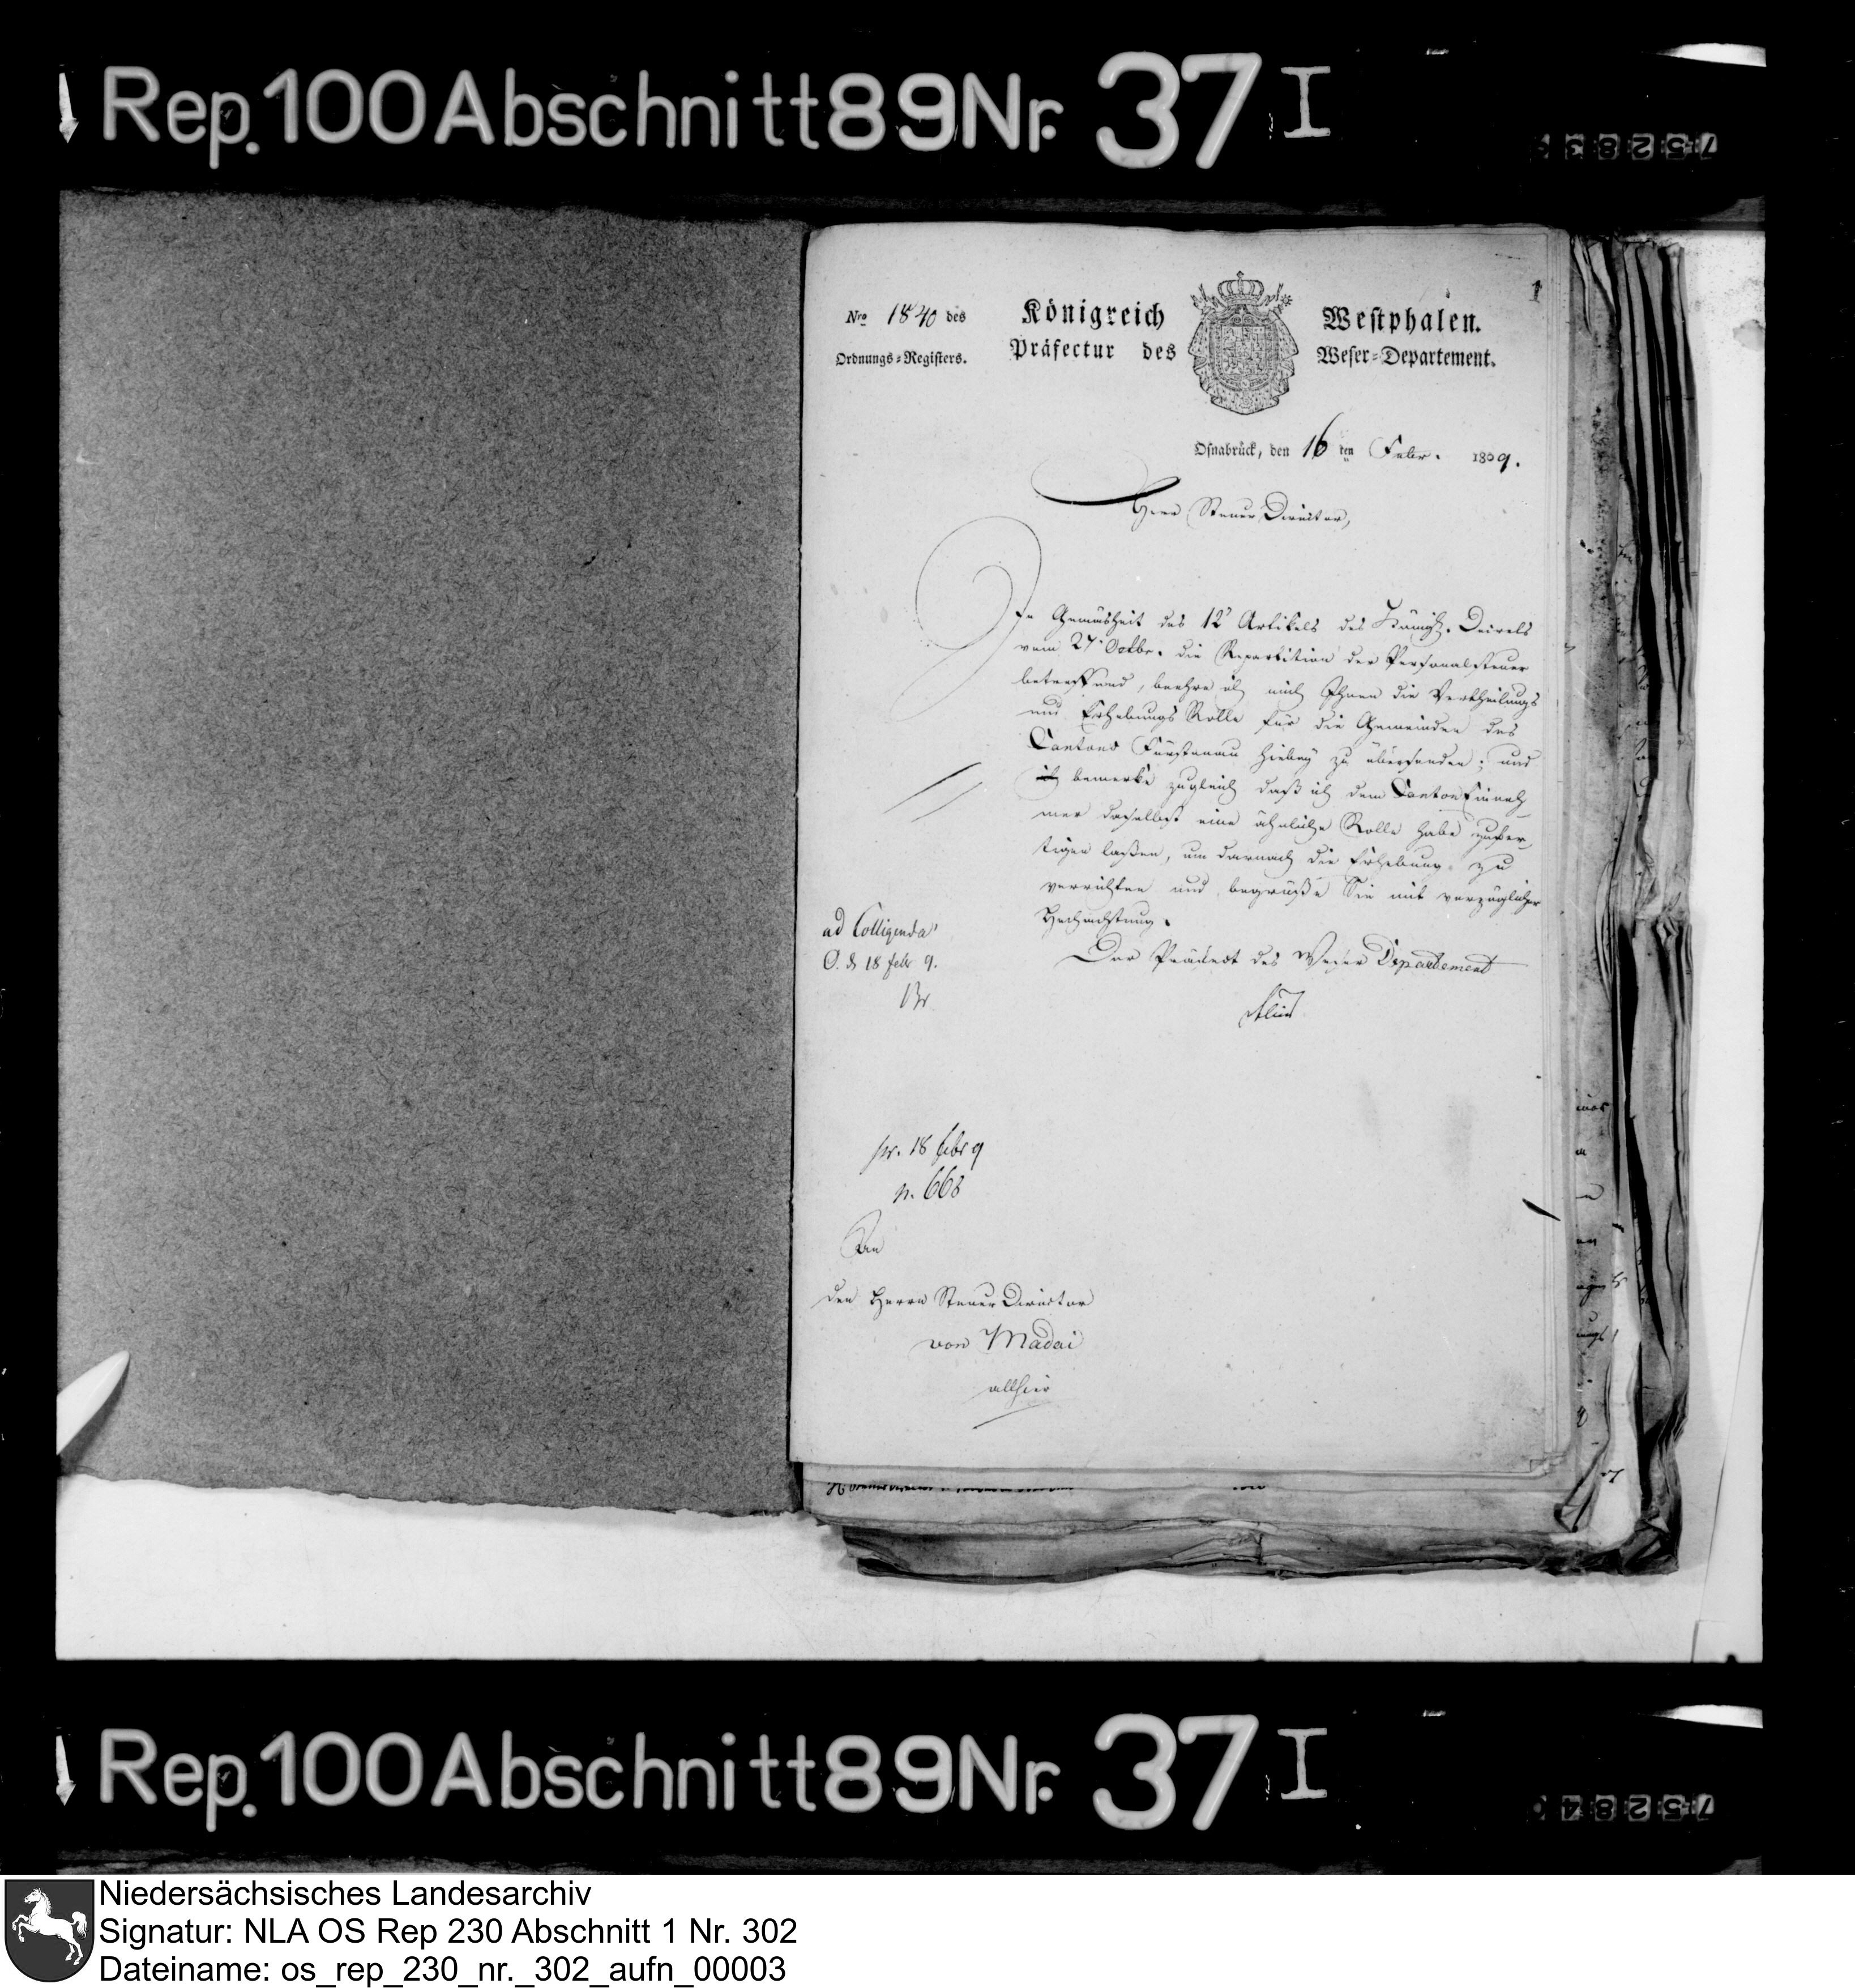 Rep. 100 Abschnitt 89 Nr. 37 I
1
Nro 1840 des
Ordnungs-Registers.
Königreich Westphalen.
Präfectur des Weser-Departement.
Osnabrück, den 16 ten Febr. 1809.
Herr Steuer Director,
In Gemäsheit des 12t Artikels des Königl. Decrets
vom 27t Octbr. die Repartition der Personalsteuer
betreffend, beehre ich mich Ihnen die Vertheilungs
und Erhebungs Rolle für die Gemeinden des
Cantons Fürstenau hiebey zu übersenden; und
ich bemerke zugleich daß ich dem Canton Einneh
mer daselbst eine ähnliche Rolle habe zufer
tigen laßen, um darnach die Erhebung zu
verrichten und begrüße Sie mit vorzüglicher
Hochachtung.
Der Präfect des Weser Departement
ad Colligenda
O. d 18 febr 9.
pr. 18 febr 9
n. 668
An
den Herrn Steuer Director
von Madai
allhier
Rep. 100 Abschnitt 89 Nr. 37 I
Niedersächsisches Landesarchiv
Signatur: NLA OS Rep 230 Abschnitt 1 Nr. 302
Dateiname: os_rep_230_nr._302_aufn_00003